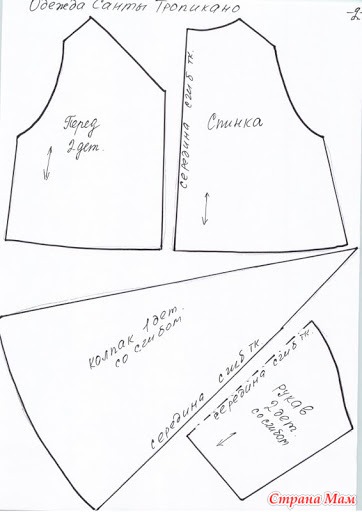 Одежда Санты Тропикано
-2-
Перед
2 дет.
середина сгиб тк.
Спинка
колпак 1 дет.
со сгибом
середина сгиб тк.
середина сгиб тк.
рукав
2 дет.
со сгибом
Страна Мам